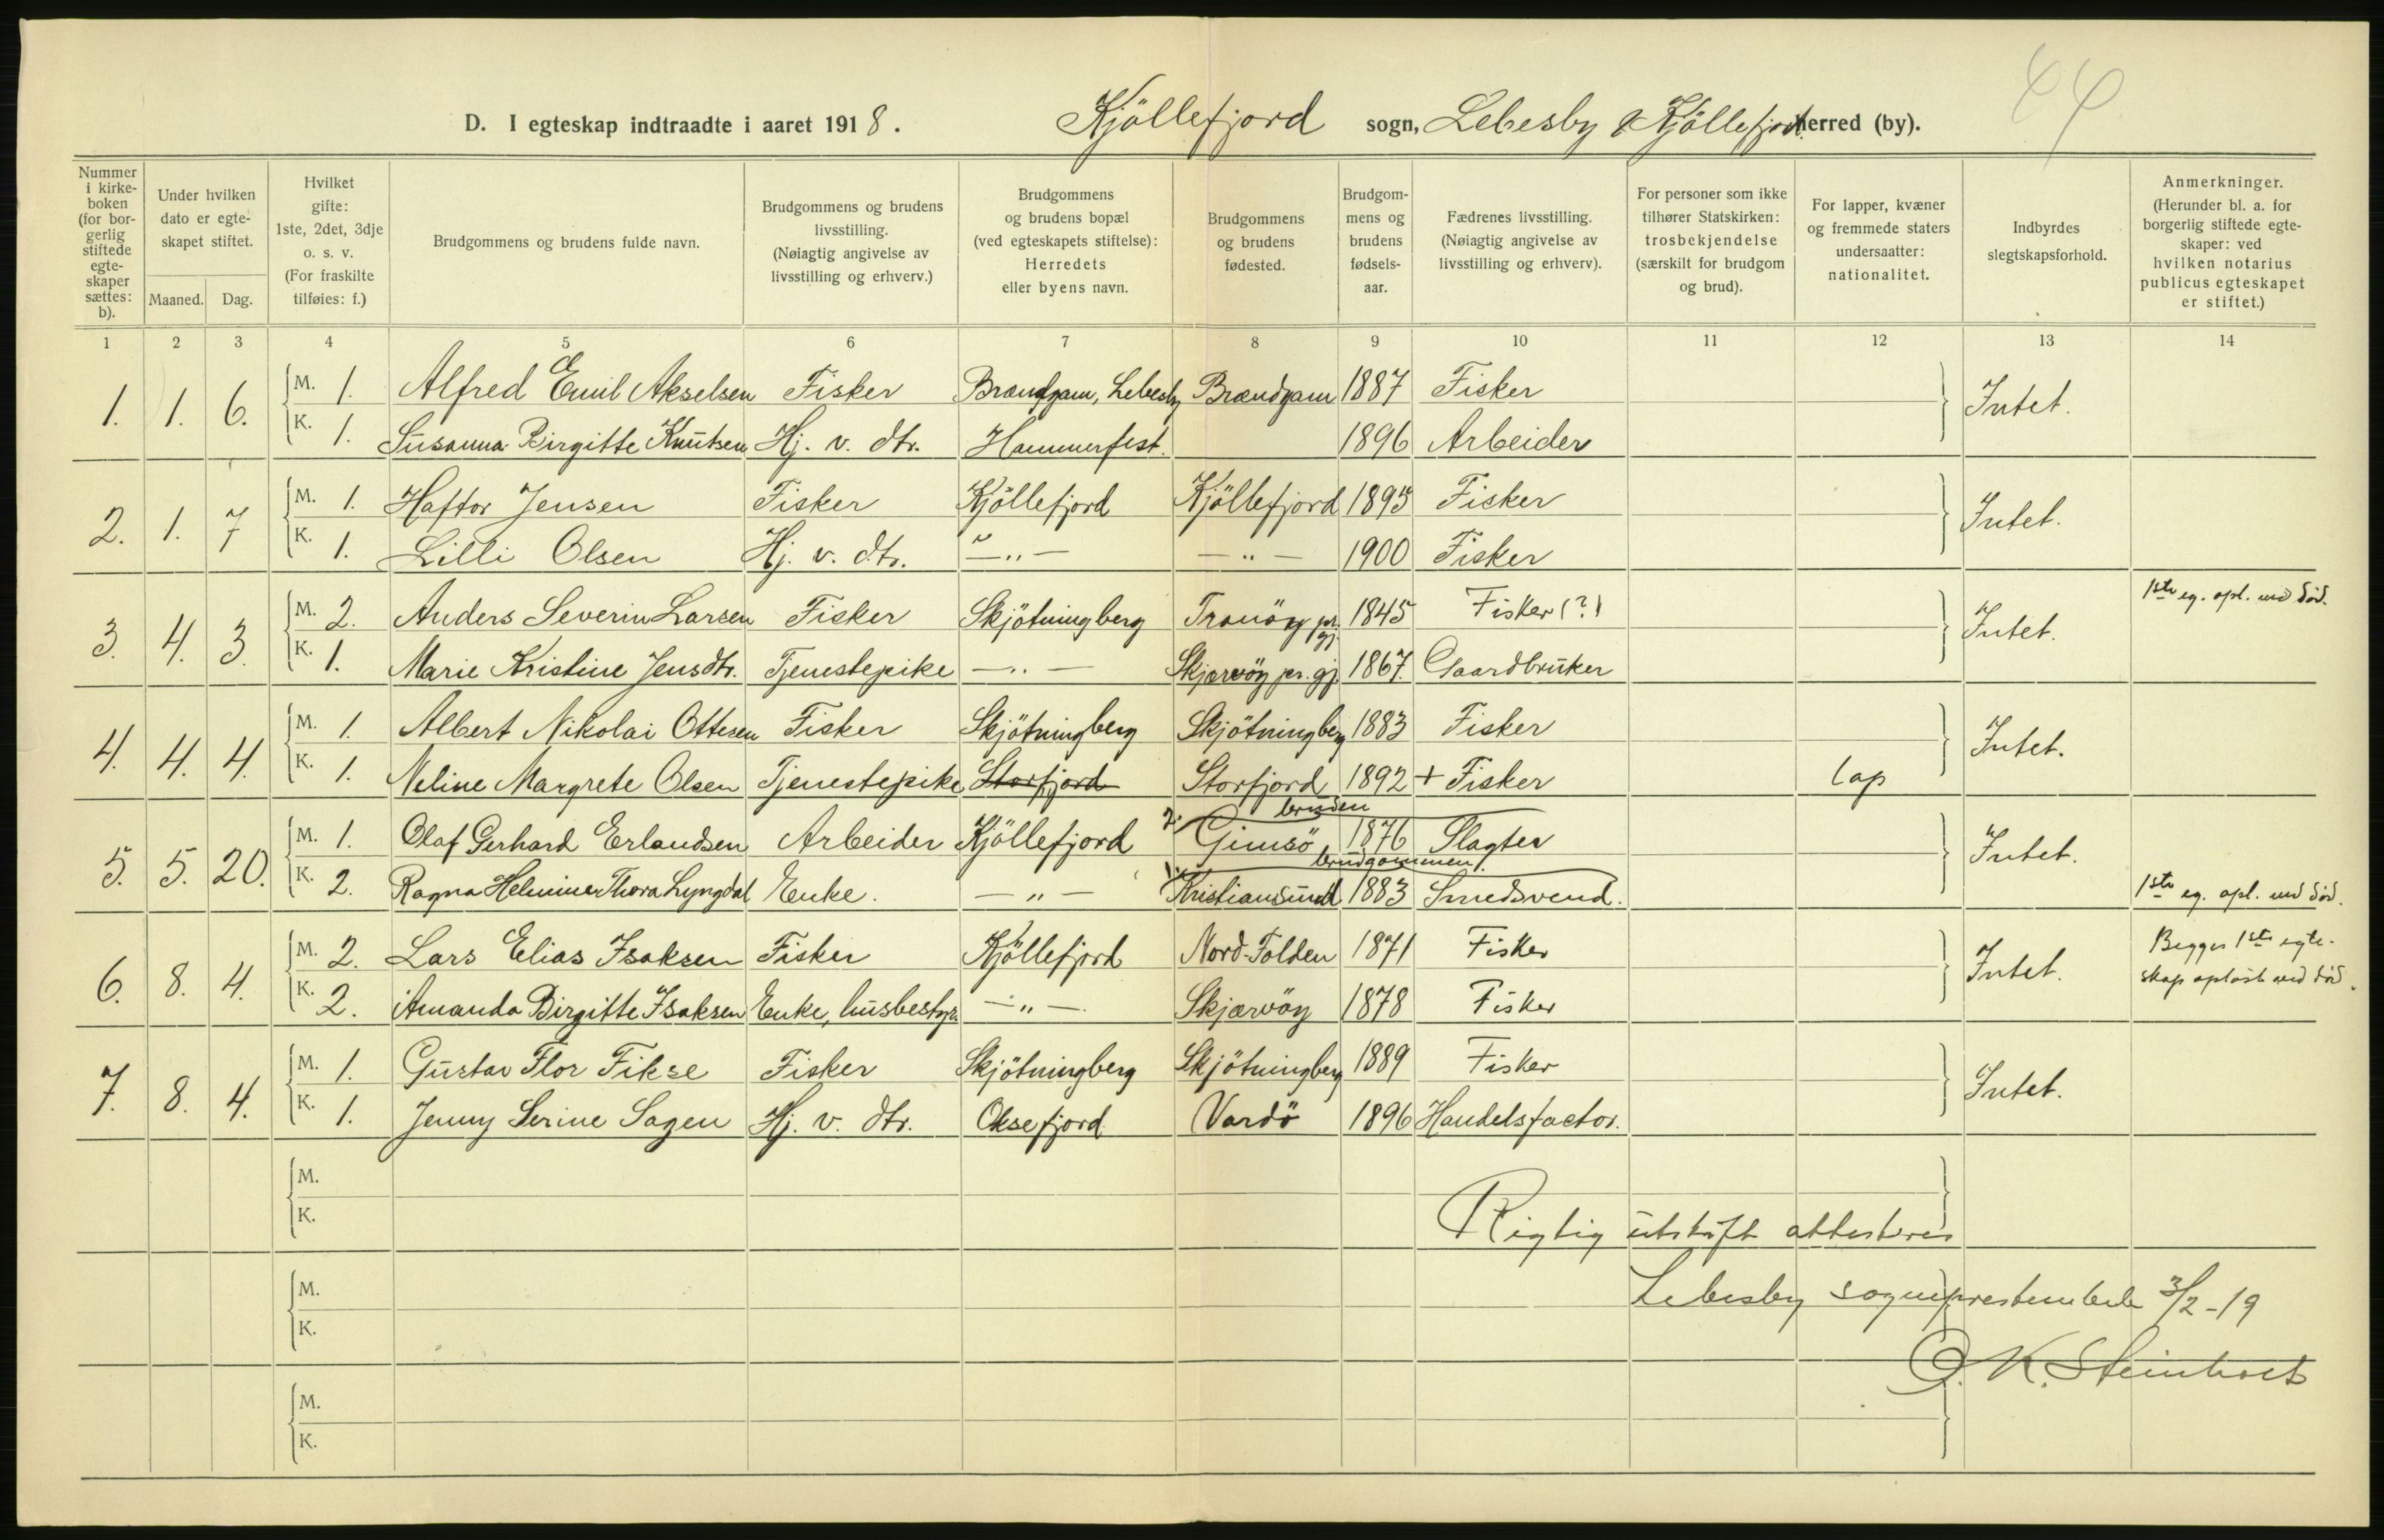 44
D. I egteskap indtraadte i aaret 1918. Kjöllefjord sogn, Lebesby & Kjöllefjord herred (by).
Nummer i kirkeboken (for borgerlig stiftede egteskaper sættes: b).
Under hvilken dato er egteskapet stiftet.
Maaned. Dag.
Hvilket gifte: 1ste, 2det, 3dje o. s. v. (For fraskilte tilføies: f.)
Brudgommens og brudens fulde navn.
Brudgommens og brudens livsstilling. (Nøiagtig angivelse av livsstilling og erhverv.)
Brudgommens og brudens bopæl (ved egteskapets stiftelse): Herredets eller byens navn.
Brudgommens og brudens fødested.
Brudgommens og brudens fødselsaar.
Fædrenes livsstilling. (Nøiagtig angivelse av livsstilling og erhverv).
For personer som ikke tilhører Statskirken: trosbekjendelse (særskilt for brudgom og brud).
For lapper, kvæner og fremmede staters undersaatter: nationalitet.
Indbyrdes slegtskapsforhold.
Anmerkninger. (Herunder bl. a. for borgerlig stiftede egteskaper: ved hvilken notarius publicus egteskapet er stiftet.)
1 2 3 4 5 6 7 8 9 10 11 12 13 14
1. 1. 6. M. 1. Alfred Emil Akselsen Fisker Brændgam, Lebesby Brændgam 1887 Fisker Intet.
K. 1. Susanna Birgitte Knutsen Hj. v. dtr. Hammerfest. 1896 Arbeider
2. 1. 7 M. 1. Haftor Jensen Fisker Kjöllefjord Kjöllefjord 1895 Fisker Intet.
K. 1. Lilli Olsen Hj. v. dtr. —„— —„— 1900 Fisker
3. 4. 3. M. 2. Anders Severin Larsen Fisker Skjötningberg Tranöy pr. gj. 1845 Fisker (?) Intet. 1ste eg. opl. ved död.
K. 1. Marie Kristine Jensdtr. Tjenestepike —„— Skjærvöy pr. gj. 1867. Gaardbruker
4. 4. 4. M. 1. Albert Nikolai Ottesen Fisker Skjötningberg Skjötningberg 1883 Fisker Intet.
K. 1. Neline Margrete Olsen Tjenestepike Storfjord Storfjord 1892 + Fisker lap
5. 5. 20. M. 1. Olaf Gerhard Erlandsen Arbeider Kjöllefjord 2. bruden Gimsö 1876 Slagter Intet.
K. 2. Ragna Helmine Thora Lyngdal Enke. —„— 1. brudgommen Kristiansund 1883 Smedsvend. 1ste eg. opl. ved död.
6. 8. 4. M. 2. Lars Elias Isaksen Fisker Kjöllefjord Nord-Folden 1871 Fisker Intet. Begges 1ste egte-
K. 2. Amanda Birgitte Isaksen Enke, husbestyr. —„— Skjærvöy 1878 Fisker skap oplöst ved död.
7. 8. 4. M. 1. Gustav Flor Fikse Fisker Skjötningberg Skjötningberg 1889 Fisker Intet.
K. 1. Jenny Serine Sagen Hj. v. dtr. Oksefjord Vardö 1896 Handelsfactor.
M.
K.
Rigtig utskrift attesteres
M.
Lebesby sogneprestembede 3/2-19
K.
O. K. Steinholt
M.
K.